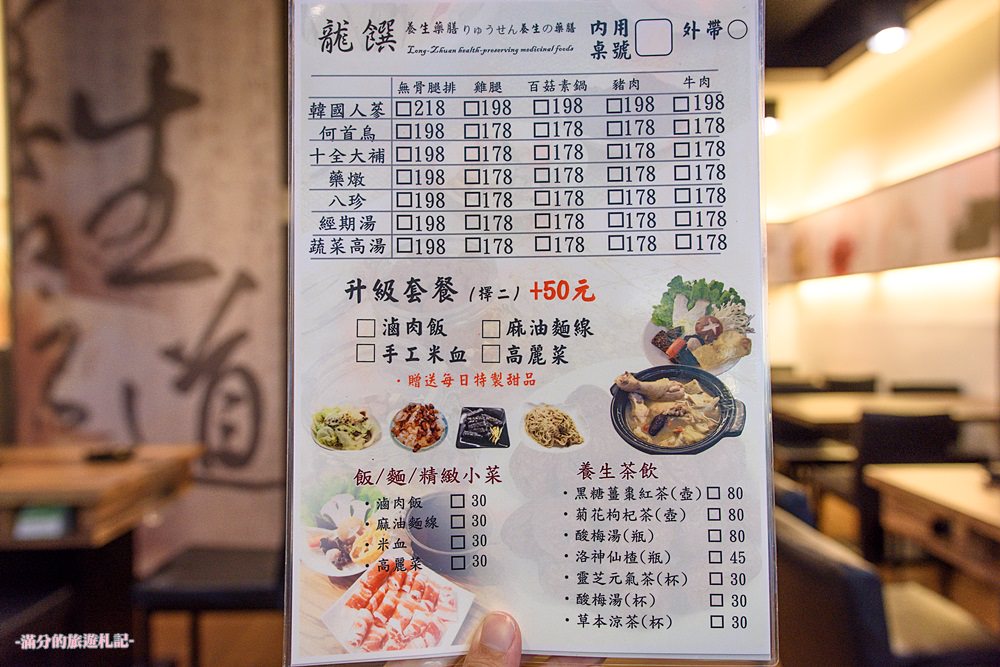 龍饌 養生藥膳りゅうせん養生の藥膳 內用 外帶
Long-Zhuan health-preserving medicinal foods 桌號
無骨腿排 雞腿 百菇素鍋 豬肉 牛肉
韓國人蔘 □218 □198 □198 □198 □198
何首烏 □198 □178 □178 □178 □178
十全大補 □198 □178 □178 □178 □178
藥燉 □198 □178 □178 □178 □178
八珍 □198 □178 □178 □178 □178
經期湯 □198 □178 □178 □178 □178
蔬菜高湯 □198 □178 □178 □178 □178
升級套餐 (擇二) +50元
□ 滷肉飯 □ 麻油麵線
□ 手工米血 □ 高麗菜
·贈送每日特製甜品
飯/麵/精緻小菜
·滷肉飯 □ 30
·麻油麵線 □ 30
·米血 □ 30
·高麗菜 □ 30
養生茶飲
·黑糖薑棗紅茶(壺) □ 80
·菊花枸杞茶(壺) □ 80
·酸梅湯(瓶) □ 80
·洛神仙楂(瓶) □ 45
·靈芝元氣茶(杯) □ 30
·酸梅湯(杯) □ 30
·草本涼茶(杯) □ 30
道
-滿分的旅遊札記-